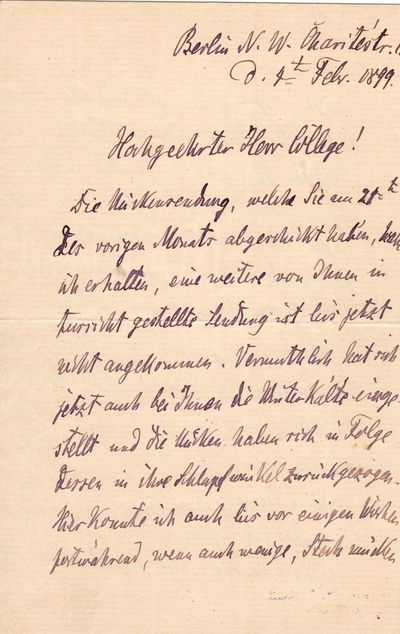 Berlin N. W. Charitéstr. 1
d. 4ᵗ Febr. 1899.
Hochgeehrter Herr College!
Die Mückensendung, welche Sie am 21ᵗ
des vorigen Monats abgeschickt haben, habe
ich erhalten, eine weitere von Ihnen in
Aussicht gestellte Sendung ist bis jetzt
nicht angekommen. Vermuthlich hat sich
jetzt auch bei Ihnen die Winterkälte einge
stellt und die Mücken haben sich in Folge
dessen in ihre Schlupfwinkel zurückgezogen.
Hier konnte ich auch bis vor einigen Wochen
fortwährend, wenn auch wenige, Stechmücken